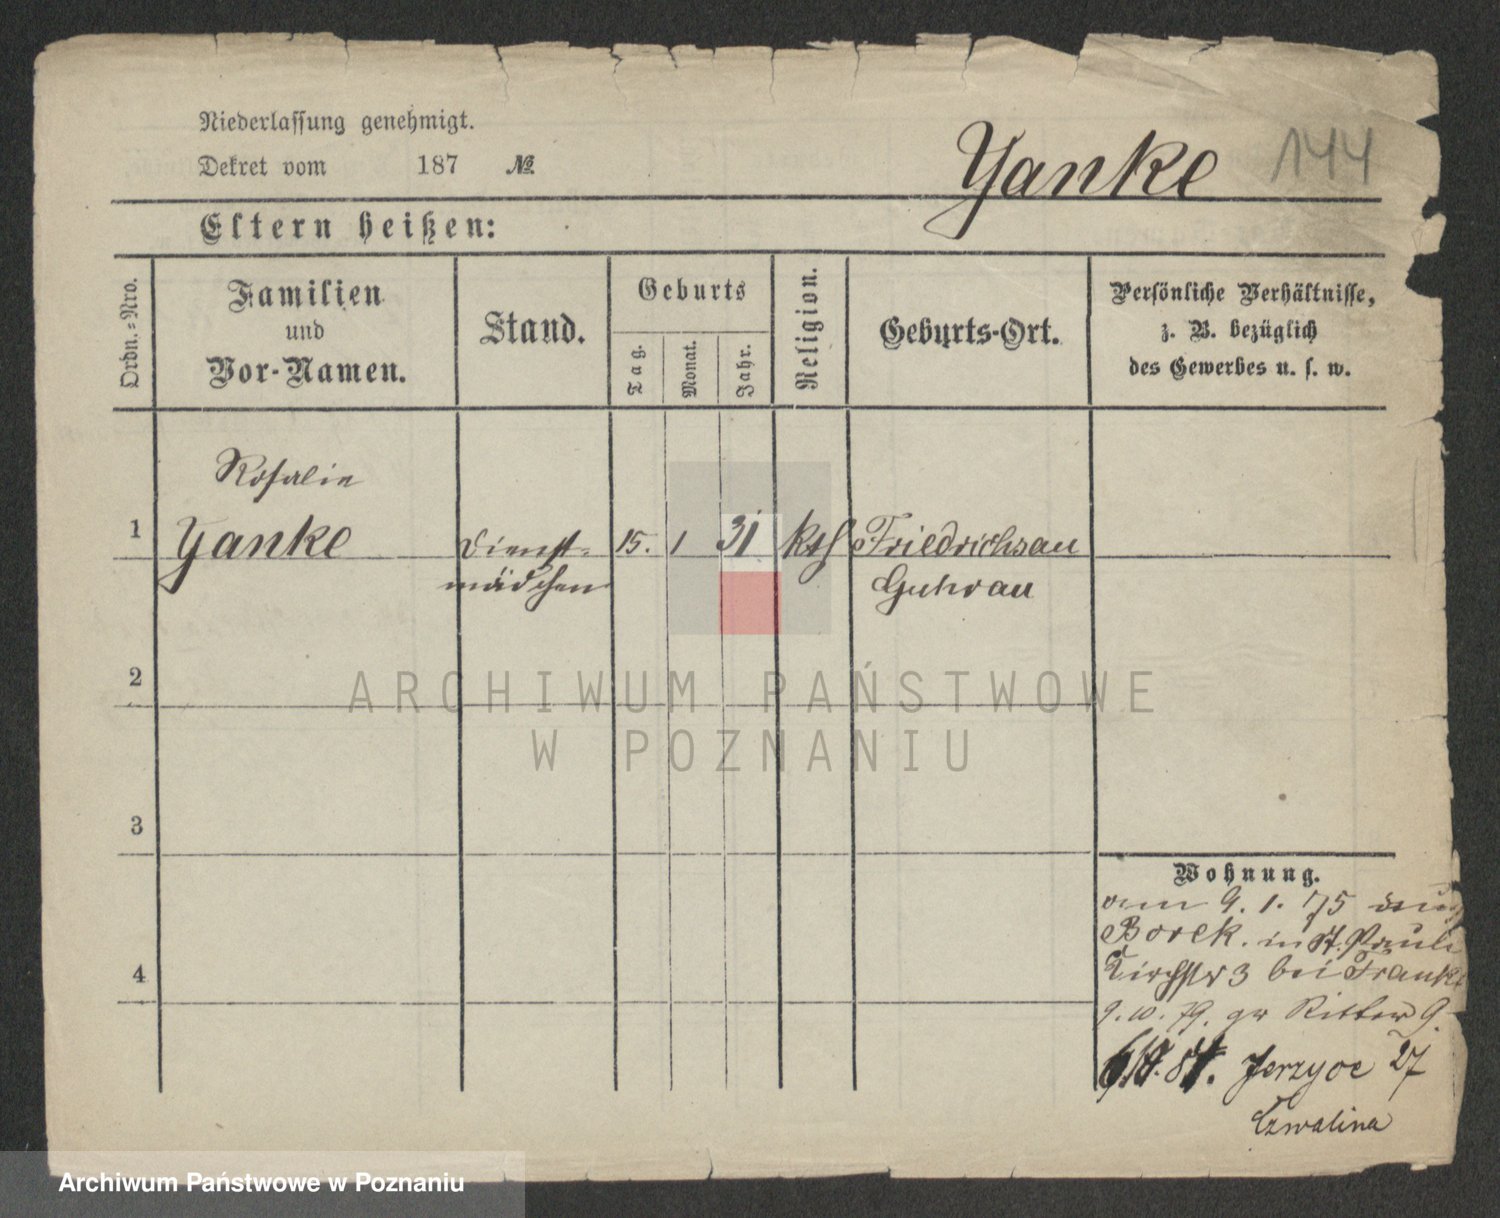 Niederlassung genehmigt.
Dekret vom 187 №
Yanke 144
Eltern heißen:
Ordn.-Nro.
Familien
und
Vor-Namen.
Stand.
Geburts
Tag.
Monat.
Jahr.
Religion.
Geburts-Ort.
Persönliche Verhältnisse,
z. B. bezüglich
des Gewerbes u. s. w.
Rosalie
1 Yanke Dienst- 15. 1 31 kth Friedrichsau
mädchen Guhrau
2
3
4
Wohnung.
9. 1. 75 aus
Borek. in St. Pauli
Kirchstr 3 bei Franke
9. 10. 79. gr Ritter 9.
Jerzyce 27
Czwalina
ARCHIWUM PAŃSTWOWE
W POZNANIU
Archiwum Państwowe w Poznaniu